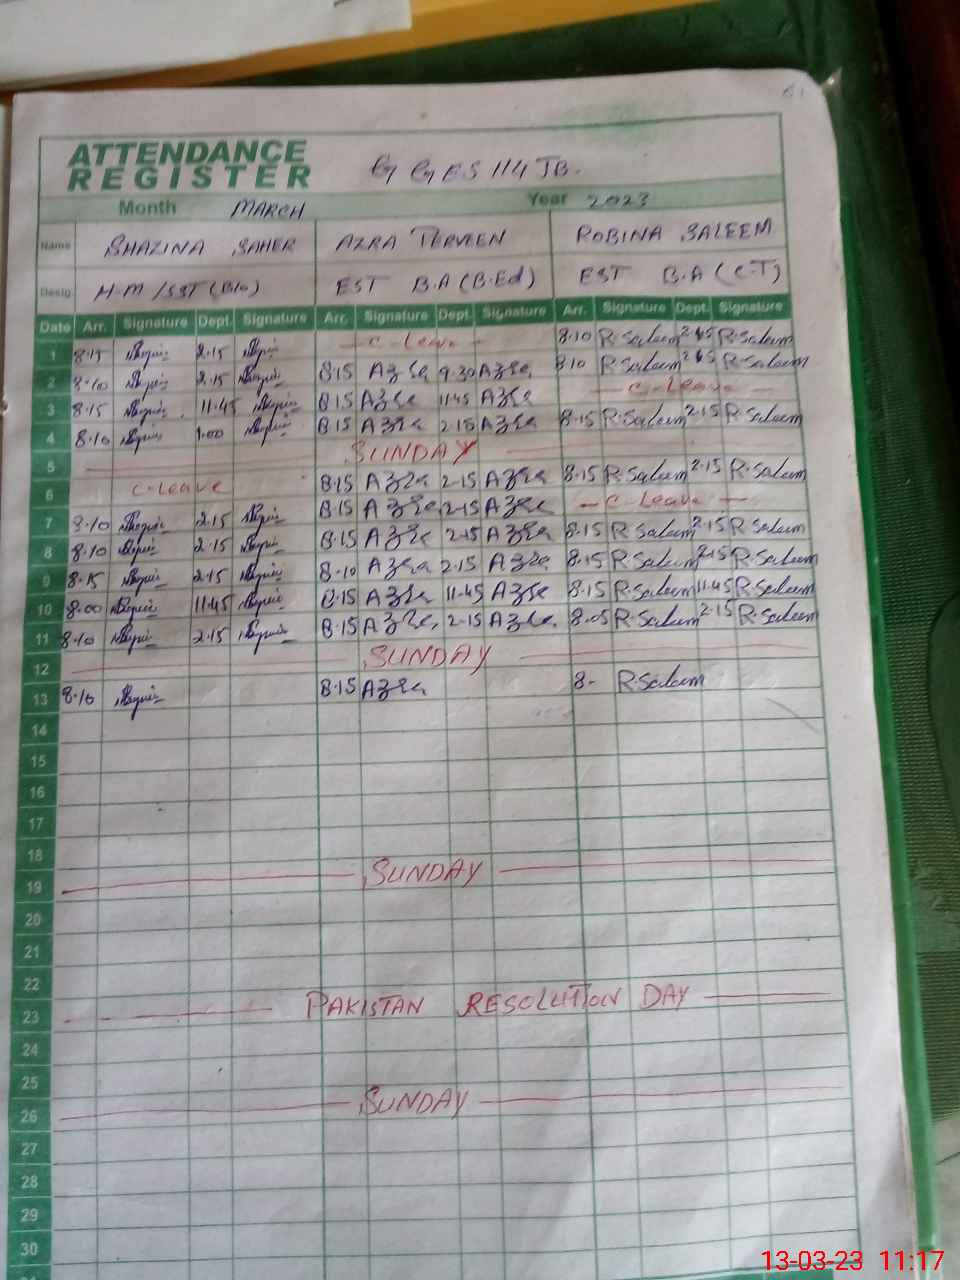 ATTENDANCE
REGISTER
G GES 114 JB.
Month MARCH Year 2023
Name SHAZINA SAHER AZRA PERVEEN ROBINA SALEEM
Desig. H.M/SST(Bio) EST B.A(B.Ed) EST B.A(C.T)
Date Arr. Signature Dept. Signature Arr. Signature Dept. Signature Arr. Signature Dept. Signature
1 8.15 2.15 C-Leave 8.10 R.Saleem 2.15 R.Saleem
2 8.10 2.15 8.15 Azra 9.30 Azra 8.10 R.Saleem R.Saleem
3 8.15 11.45 8.15 Azra 11.45 Azra C-Leave
4 8.10 1.00 8.15 Azra 2.15 Azra 8.15 R.Saleem 2.15 R.Saleem
5 SUNDAY
6 C-Leave 8.15 Azra 2.15 Azra 8.15 R.Saleem 2.15 R.Saleem
7 8.10 2.15 8.15 Azra 2.15 Azra C-Leave
8 8.10 2.15 8.15 Azra 2.15 Azra 8.15 R.Saleem 2.15 R.Saleem
9 8.15 2.15 8.10 Azra 2.15 Azra 8.15 R.Saleem 2.15 R.Saleem
10 8.00 11.45 8.15 Azra 11.45 Azra 8.15 R.Saleem 11.45 R.Saleem
11 8.10 2.15 8.15 Azra 2.15 Azra 8.05 R.Saleem 2.15 R.Saleem
12 SUNDAY
13 8.10 8.15 Azra 8- R.Saleem
14
15
16
17
18
19 SUNDAY
20
21
22
23 PAKISTAN RESOLUTION DAY
24
25
26 SUNDAY
27
28
29
30
13-03-23 11:17